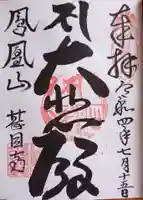 奉拝 令和四年七月十日
大悲殿
鳳凰山 甚目寺